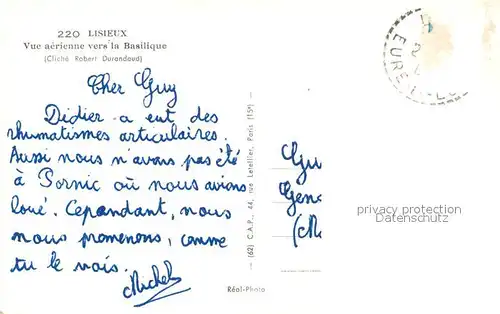 220 LISIEUX
Vue aérienne vers la Basilique
(Cliché Robert Durandaud)
Cher Guy
Didier a eut des
rhumatismes articulaires.
Aussi nous n'avons pas été
à Pornic où nous avions
loué. Cependant, nous
nous promenons, comme
tu le vois.
Michel
Réal-Photo
(62) C.A.P., 44, rue Letellier, Paris (15e)
Gu
Gen
(M
privacy protection
EURE